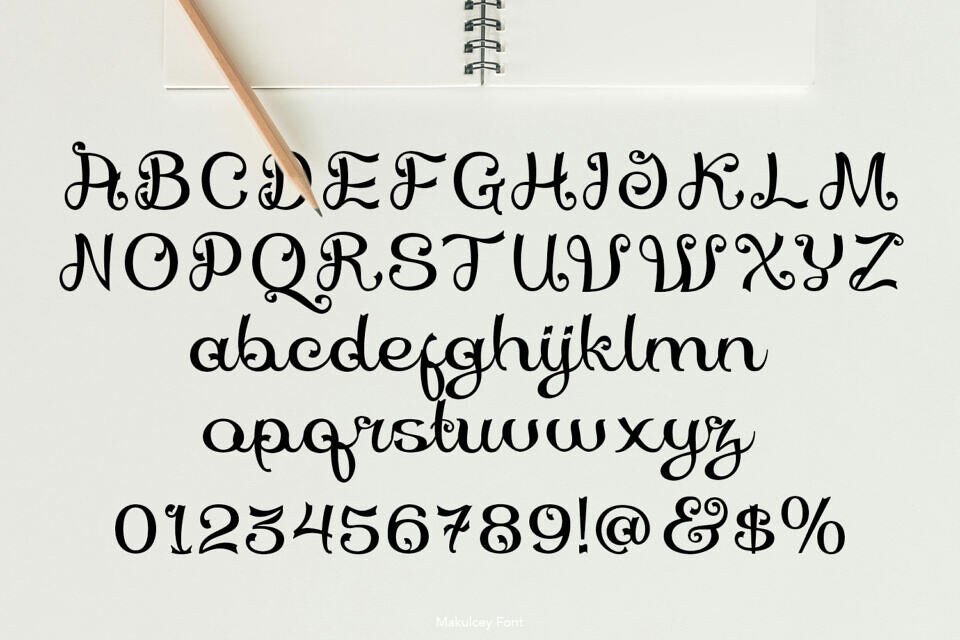 ABCDEFGHIJKLM
NOPQRSTUVWXYZ
abcdefghijklmn
opqrstuvwxyz
0123456789!@&$%
Makulcey Font